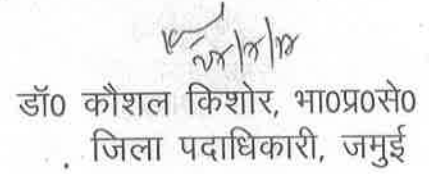 डॉ0 कौशल किशोर, भा0प्र0से0
जिला पदाधिकारी, जमुई